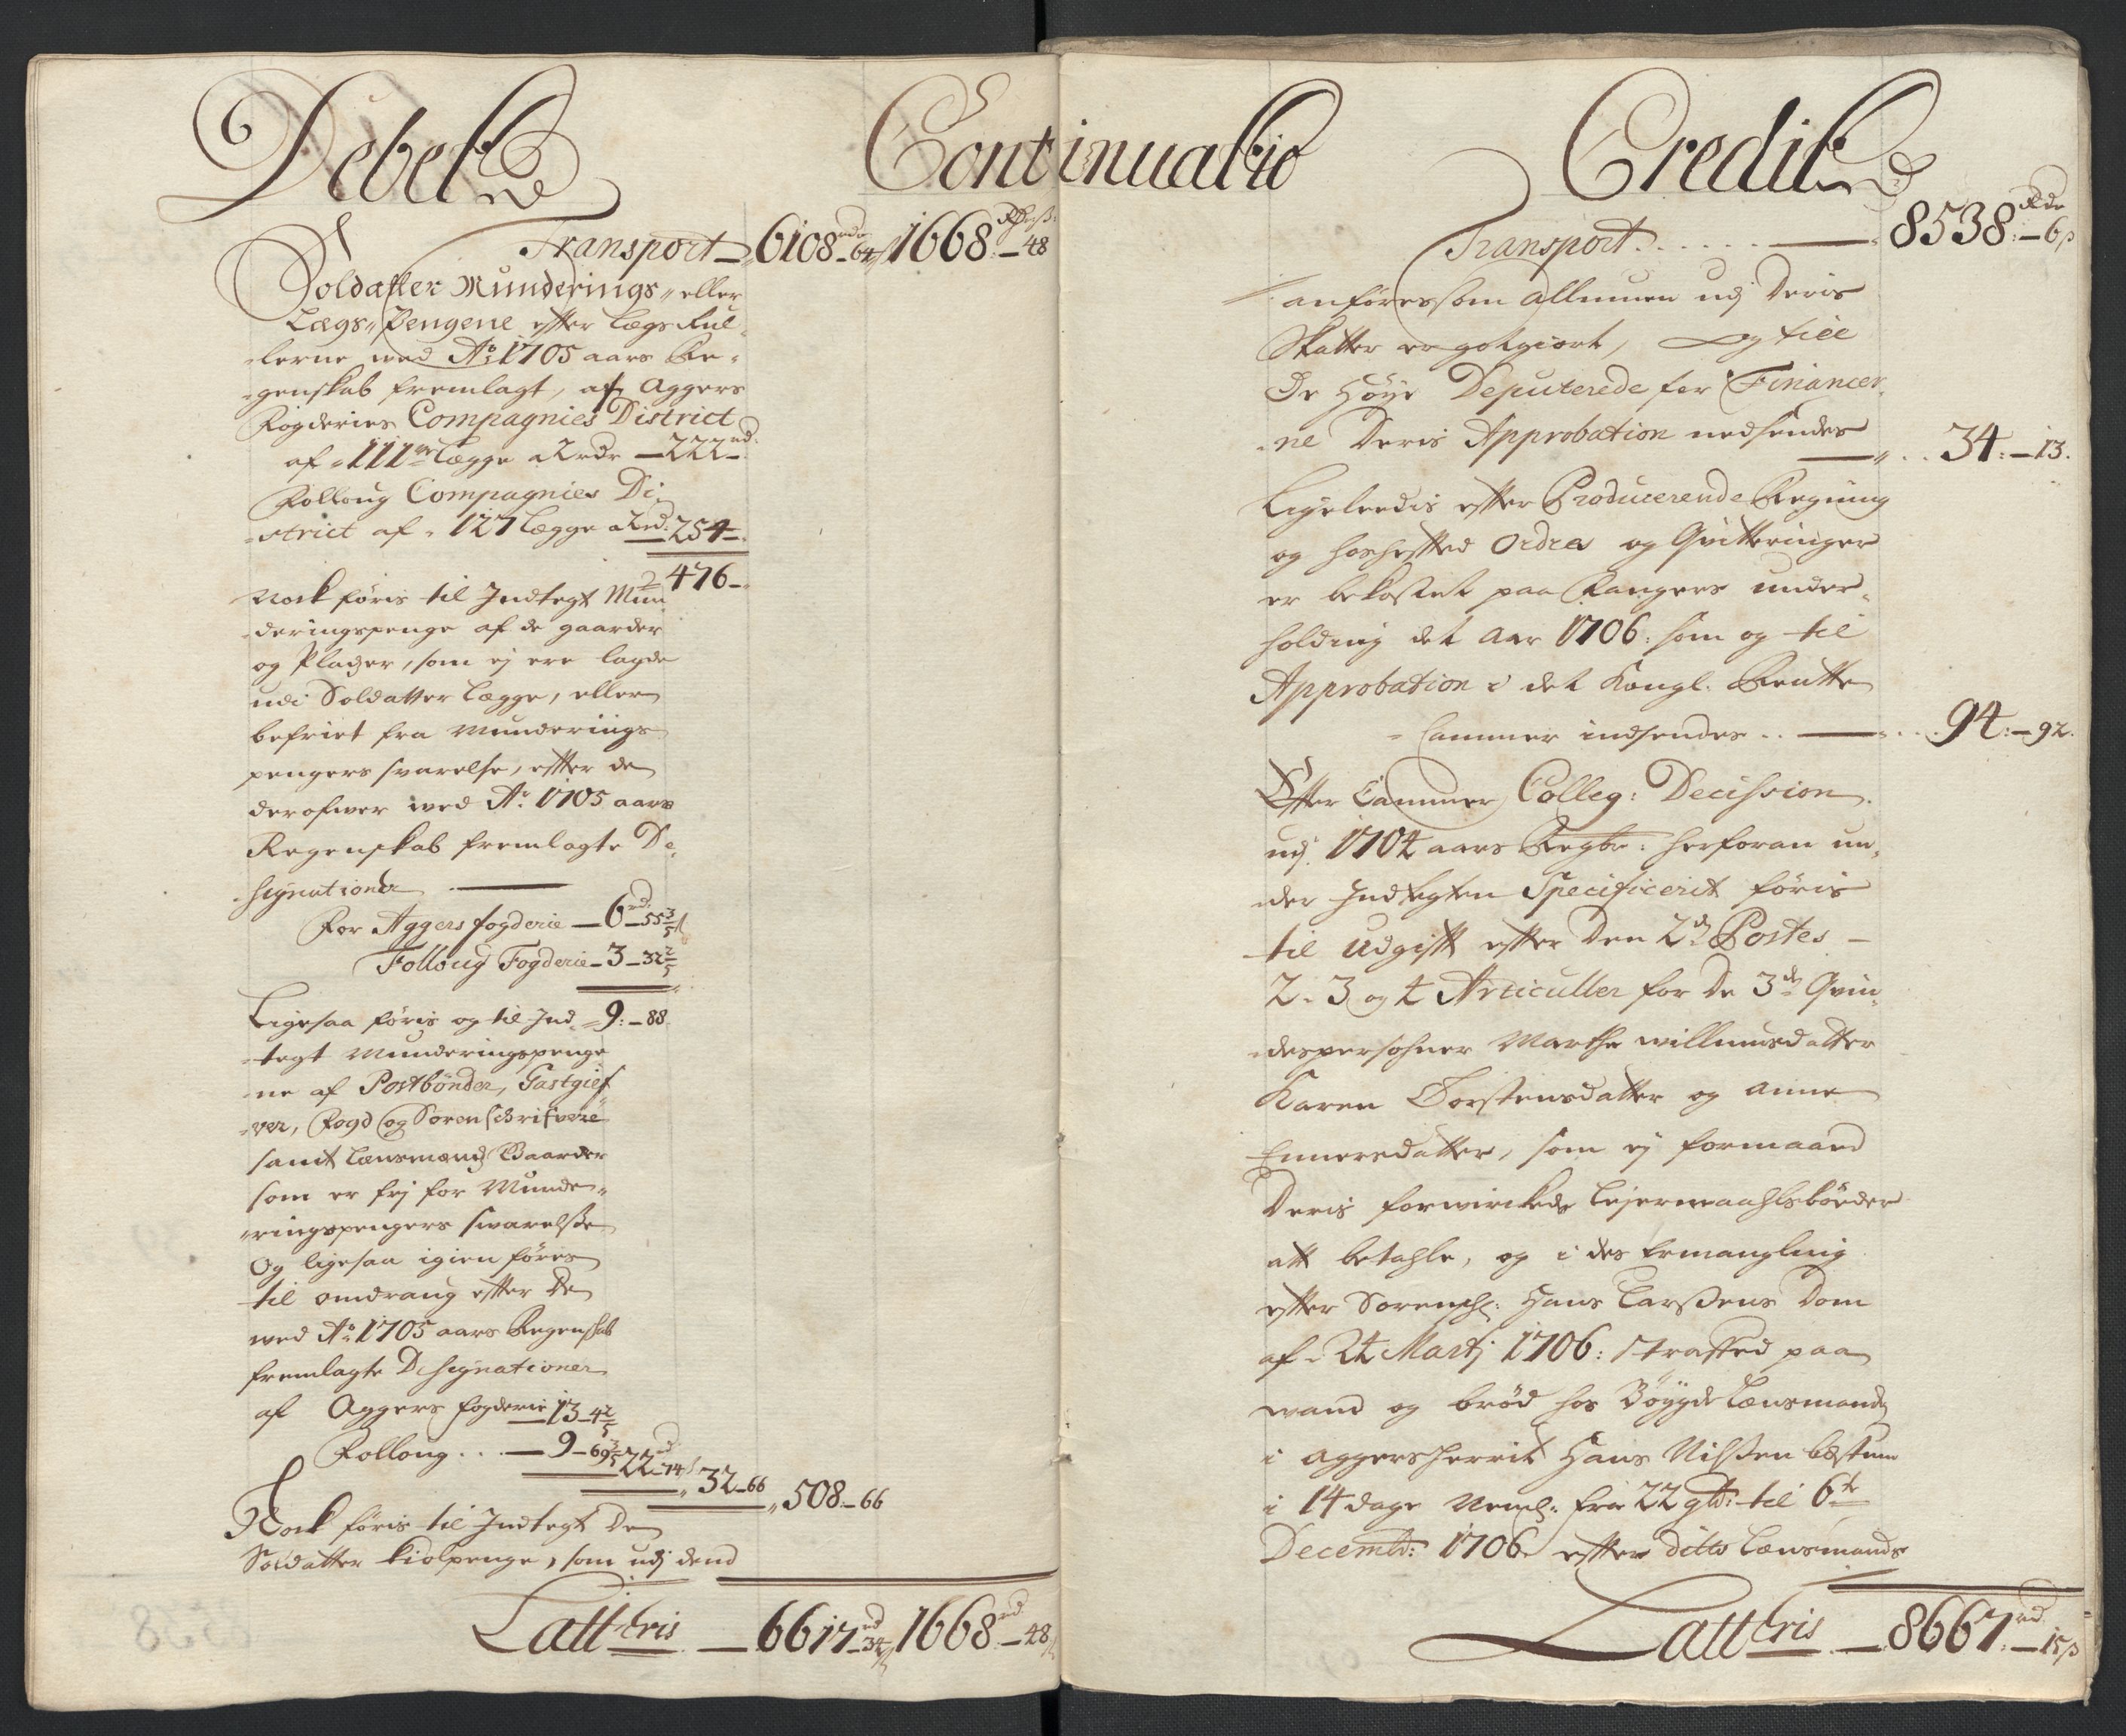 Debet
Continuatio
Transport 6108 rdr 64 ß 1668 Rd 48
Soldatter Munderings eller
Lægs Pengene efter Lægs Rul-
lerne wed Ao 1705 aars Re-
genskab fremlagt, af Aggers
Fogderies Compagnies District
af 111 Lægge a 2 rdr — 222 rd
Folloug Compagnies Di-
strict af 127 Lægge a 2 rd 254
476
Nock føris til Indtegt Mun-
deringspenge af de gaarder
og Pladzer, som ej ere lagde
udi Soldatter Lægge, eller
befriet fra Munderings
pengers svarelse, efter de
derofwer wed Ao 1705 aars
Regenskab fremlagte De-
signationer
For Aggers fogderie — 6 rd — 55 3/5 ß
Folloug Fogderie — 3 — 32 2/5
9 — 88
Ligesaa føris og til Ind-
tegt Munderingspenge
ne af Postbønder, Gastgief
ver, Fogd og Sorenschrifvere
samt Lænsmænds Gaarder
som er frj for Munde-
ringspengers swarelsse
Og ligesaa igien føres
til omdrang efter De
wed Ao 1705 aars Regenskab
fremlagte Designationer
af Aggers fogderie 13 — 4 2/5
Folloug . . . — 9 — 69 3/5
22 rd 74 ß
32 — 66
508 — 66
Nock føris til Indtegt De
Soldatter kiolpenge, som udj dend
Latteris — 6617 rd 34 ß 1668 rd — 48 ß
Credit
Transport . . . . . . — 8538 Rdr — 6 ß
anføres som Allmuen udj Deris
Skatter er gotgiort, og till
De Høye Deputerede for Financer-
ne Deris Approbation nedsendes
34 — 13
Ligeleedis efter Producerende Regning
og hoshefted Ordres og Qvitteringer
er bekostet paa Fangers under-
holding det Aar 1706 som og til
Approbation i det Kongl. Rentte
Cammer indsendes . . — 94 — 92
Efter Cammer Colleg: Decission
udj 1704 aars Regbr: herforan un-
der Indtegten Specificerit føris
til Udgift efter Den 2d Postes
2. 3 og 4 Articuller for De 3de Qvin-
despersohner Marthe willumsdatter
Karen Torstensdatter og Anne
Ennersdatter, som ej formaaed
Deris forwirckede Lejermaahlsbøeder
att betahle, og i des Ermangling
efter Sorenschr: Hans Larssens Dom
af 24 Martj 1706: straffed paa
wand og brød hos Bøygde Lænsmand
i Aggersherrit Hans Nilssen bæstum
i 14 dage Neml: fra 22 9br: til 6te
Decembr: 1706 efter ditto Lænsmands
Latteris — 8667 rd — 15 ß